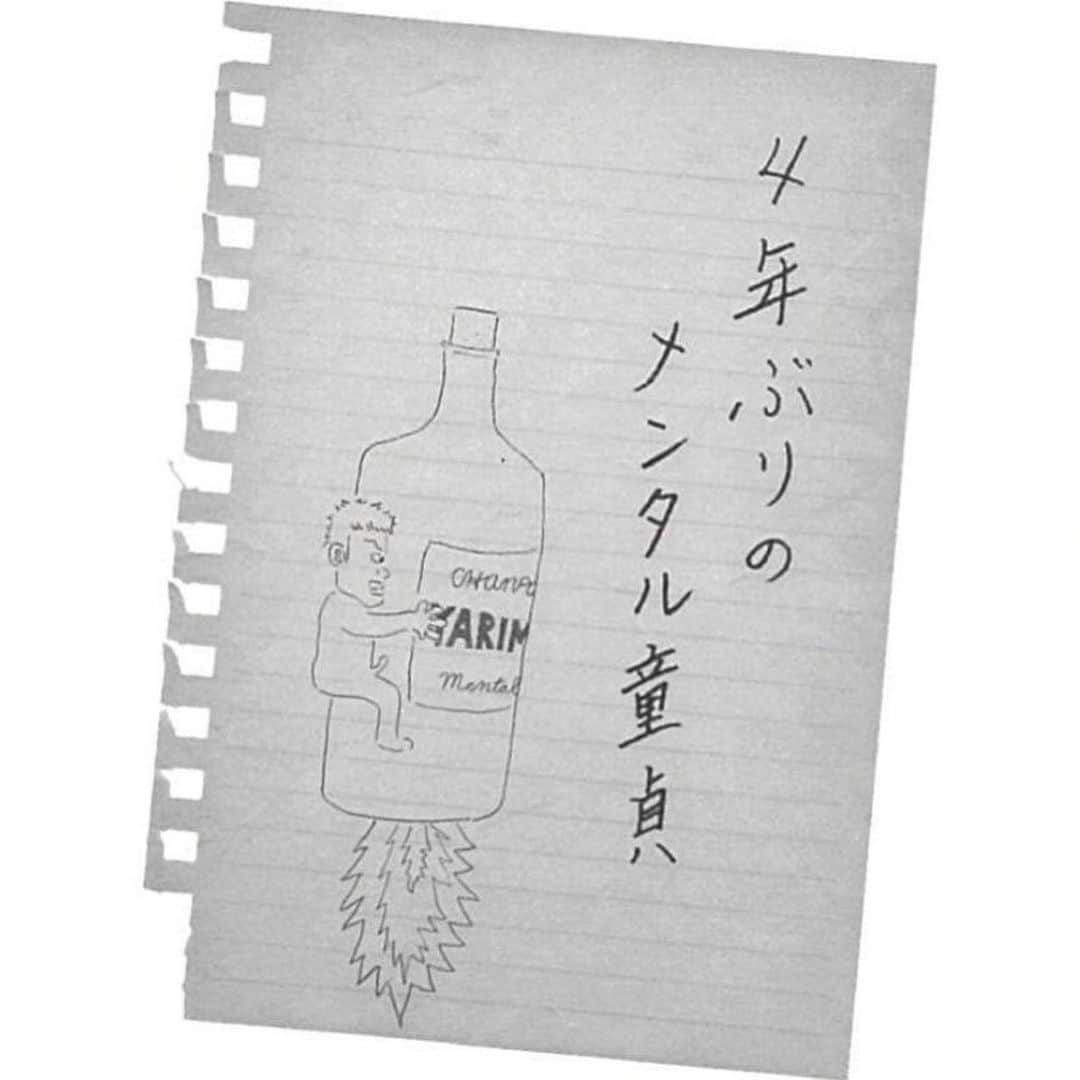 4年ぶりの
メンタル童貞
YARIM
Mental